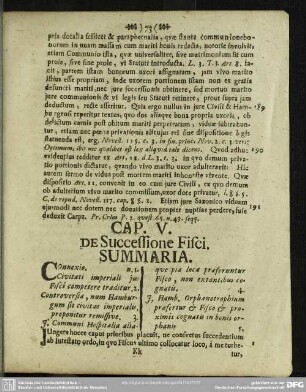 73
pria dotalia scilicet & paraphernalia, quæ stante communionebo-
norum in unam massam cum mariti bonis redacta, notorie involvit,
etiam Communio ista, quæ universaliter, sive matrimonium sit cum
prole, sive sine prole, vi Statuti introducta, L. 3. T. 1. Art. 8.
cit, partem istam bonorum uxori assignatam, jam vivo marito
istius esse propriam, inde uxorem portionem istam non ex gratia
defuncti mariti, nec jure successionis obtinere, sed mortuo marito
jure communionis & vi legis seu Statuti retinere, prout supra jam
deductum, recte asseritur. Quia ergo nullus in jure Civili & Ham- 189
burgensi reperitur textus, quo dos aliaque bona propria uxoris, ob
delictum carnis post obitum mariti perpetratum, viduæ
tur, etiam nec poena privationis alicujus rei sine dispositione legis
statuenda est, arg. Novell. 115. c. 3. in fin. princ. Nov. 2. c. 3. vers.
Optimum, ibi nec quælibet res lex aliqua tale dicens. Quod adhuc 190
evidentius redditur ex Art. 18. d. L. 3. T. 3. in quo demum priva-
tio portionis dictatur, quando vivo marito uxor adulteraverit. Hic
autem sermo de vidua post mortem mariti inhoneste vivente. Quæ
dispositio Art. 11. convenit in eo cum jure Civili, ex quo demum
ob adulterium vivo marito commissum, uxor dote privatur, l. 8. §. 5.
C. de repud. Novell. 117. cap. 8. §. 2. Etiam jure Saxonico viduam
ejusmodi nec dotem nec donationem propter nuptias perdere, fuse 191
deduxit Carpz. Pr. Crim P. 2. quæst. 65. n. 43. seqq.
CAP. V.
DE Successione Fisci.
SUMMARIA.
Connexio, n. 1.
Civitati imperiali jus
Fisci competere traditur. 2.
Controversia, num Hamburgum
sit civitas imperialis,
proponitur remissive. 3.
J. Communi Hospitalia alia-
que pia loca præferuntur
Fisco, non extantibus co-
gnatis.
J. Hamb. Orphanotrophium
præfertur & Fisco & pro-
ximis cognatis in bonis or-
phani. 5.
Ungere hocce caput prioribus placuit, ne consuetus succedentium
ab intestato ordo, in quo Fiscus ultimo collocatur loco, à me turbe-
Kk
tur,